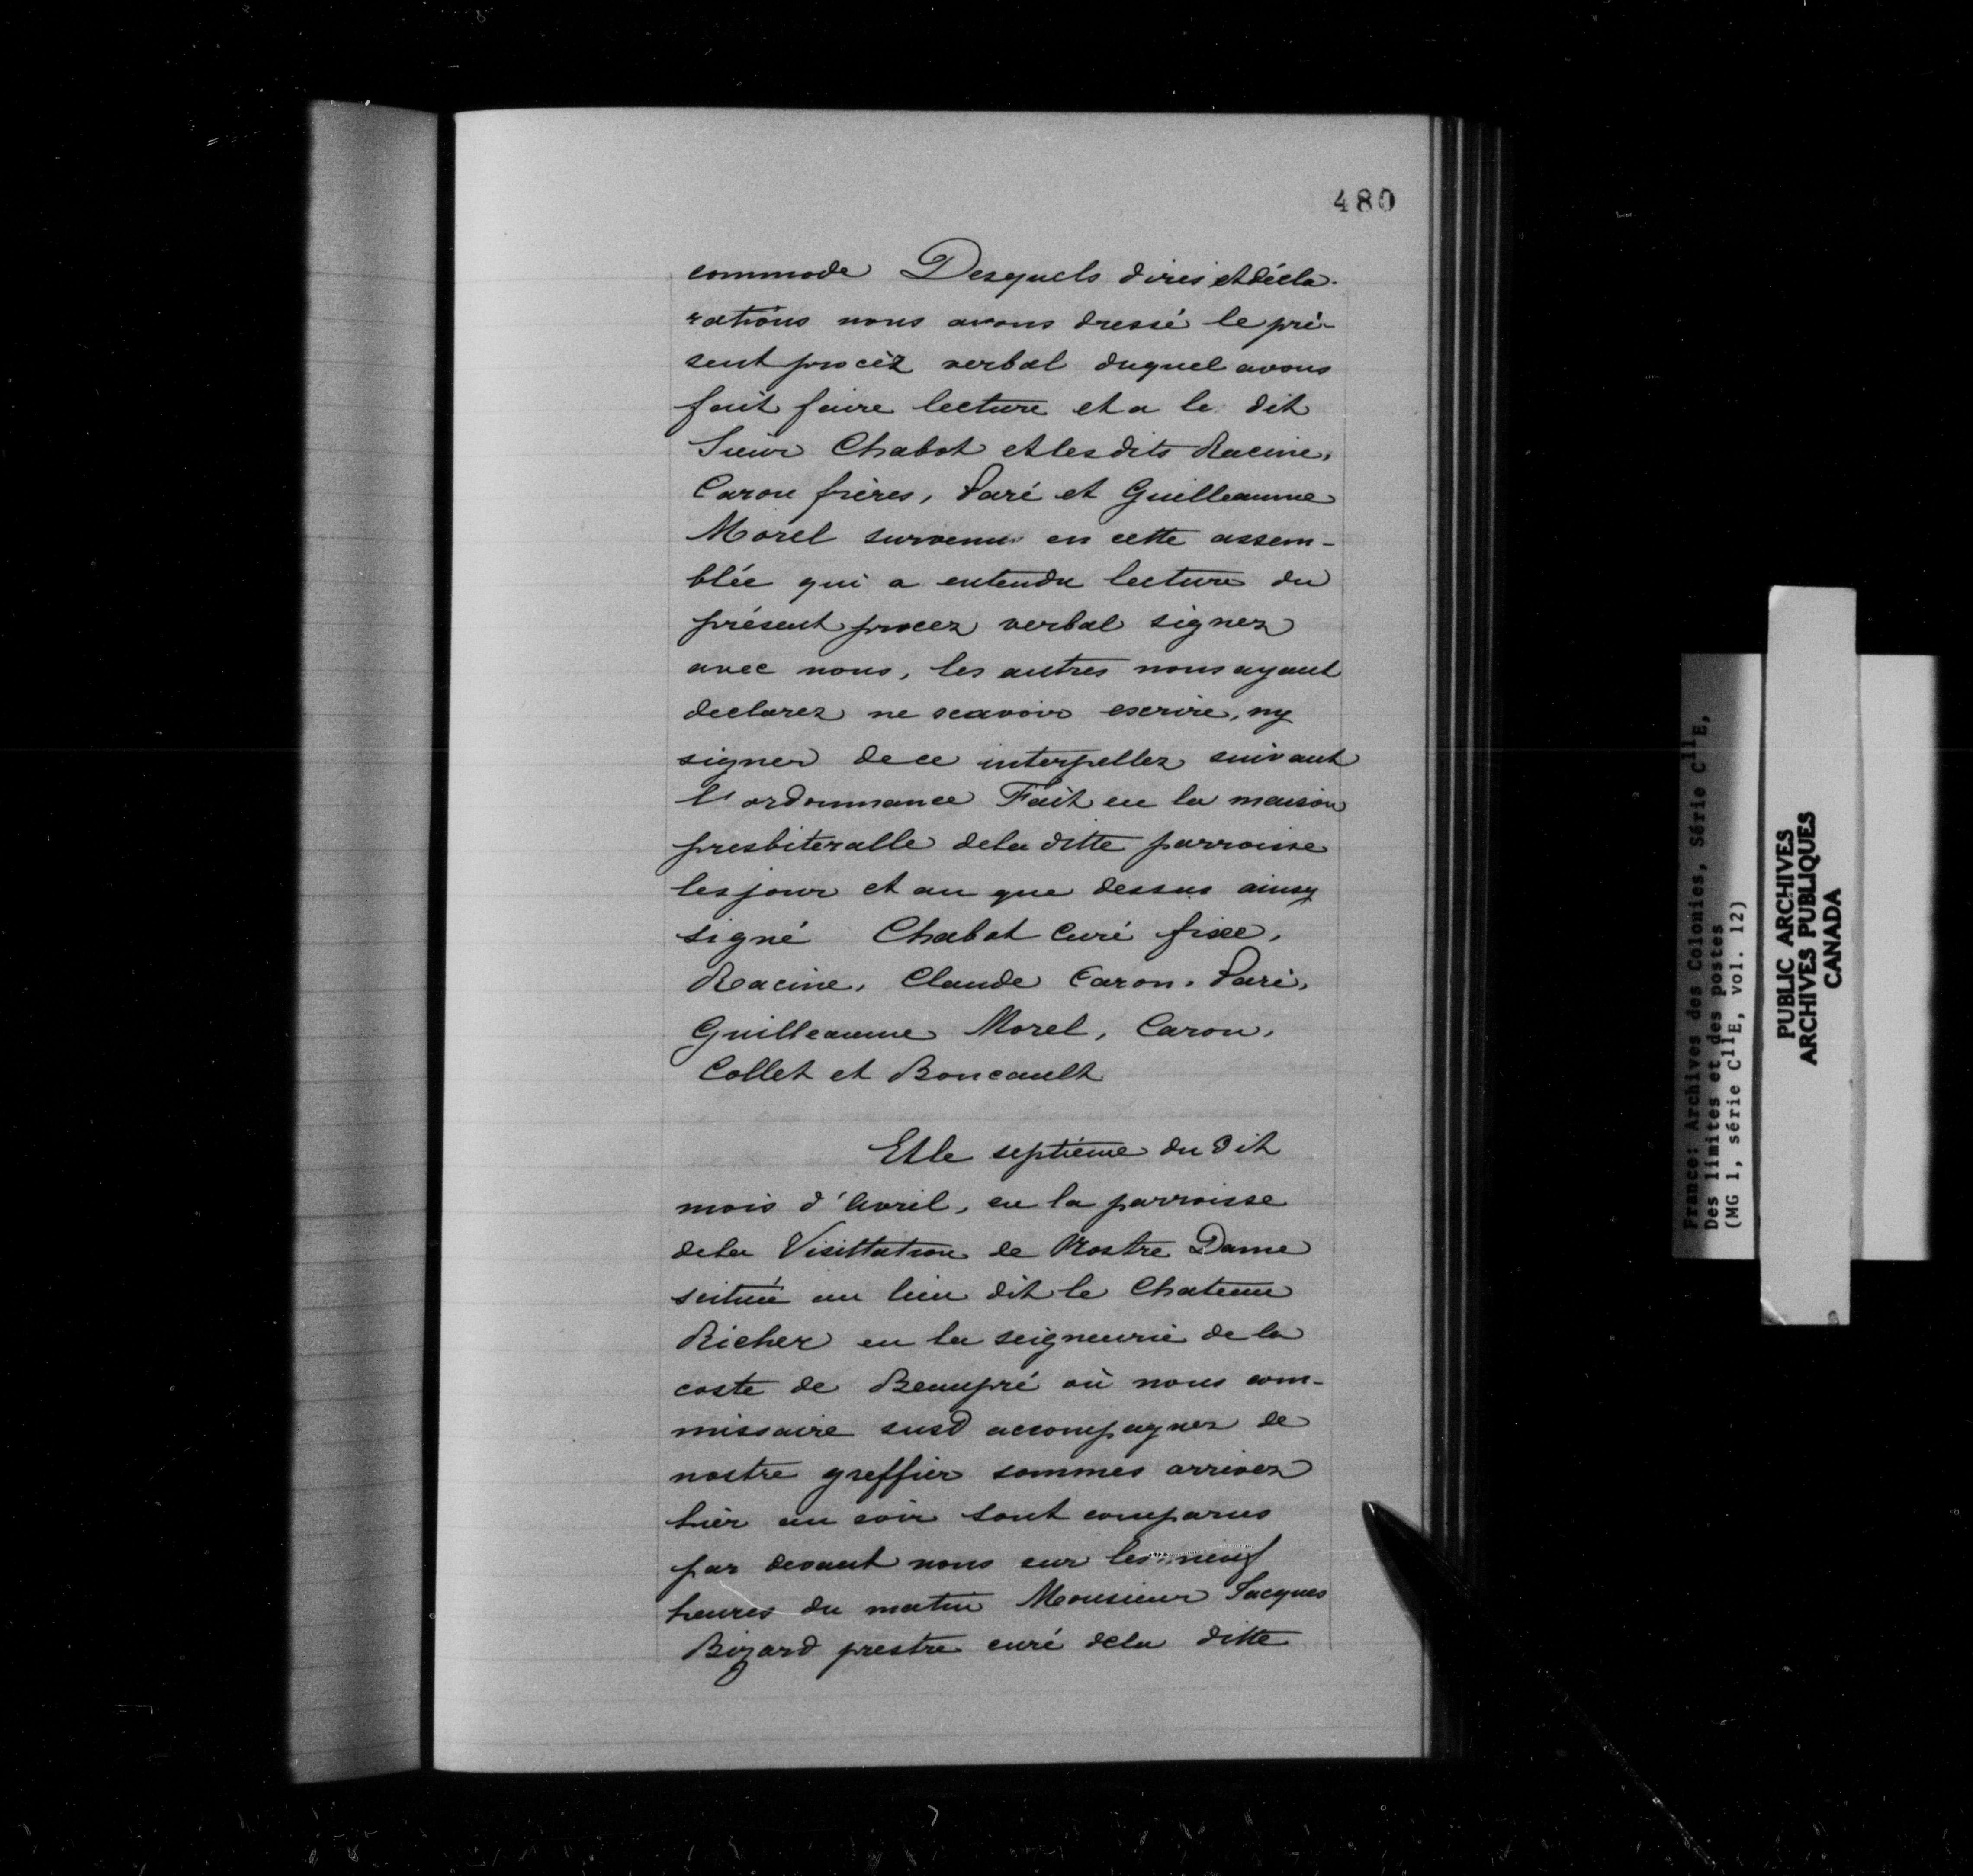 480
commode Desquels dires et décla-
rations nous avons dressé le pré-
sent procèz verbal duquel avons
fait faire lecture et a le dit
Sieur Chabot et les dits Racine,
Caron frères, Paré et Guilleaume
Morel survenu en cette assem-
blée qui a entendu lecture du
présent procez verbal signez
avec nous, les autres nous ayant
declarez ne scavoir escrire, ny
signer de ce interpellez suivant
l'ordonnance Fait en la maison
presbiteralle dela ditte parroisse
les jour et an que dessus ainsy
signé Chabot Curé fixe,
Racine, Claude Caron, Paré,
Guilleaume Morel, Caron,
Collet et Boucault
Et le septième du dit
mois d'Avril, en la parroisse
dela Visittation de Nostre Dame
scituée au lieu dit le Chateau
Richer en la seigneurie de la
coste de Beaupré où nous com-
missaire susd accompagnez de
nostre greffier sommes arrivez
hier au soir sont comparus
par devant nous sur les neuf
heures du matin Monsieur Jacques
Bizard prestre curé dela ditte
France: Archives des Colonies, Série C11E,
Des limites et des postes
(MG 1, série C11E, vol. 12)
PUBLIC ARCHIVES
ARCHIVES PUBLIQUES
CANADA